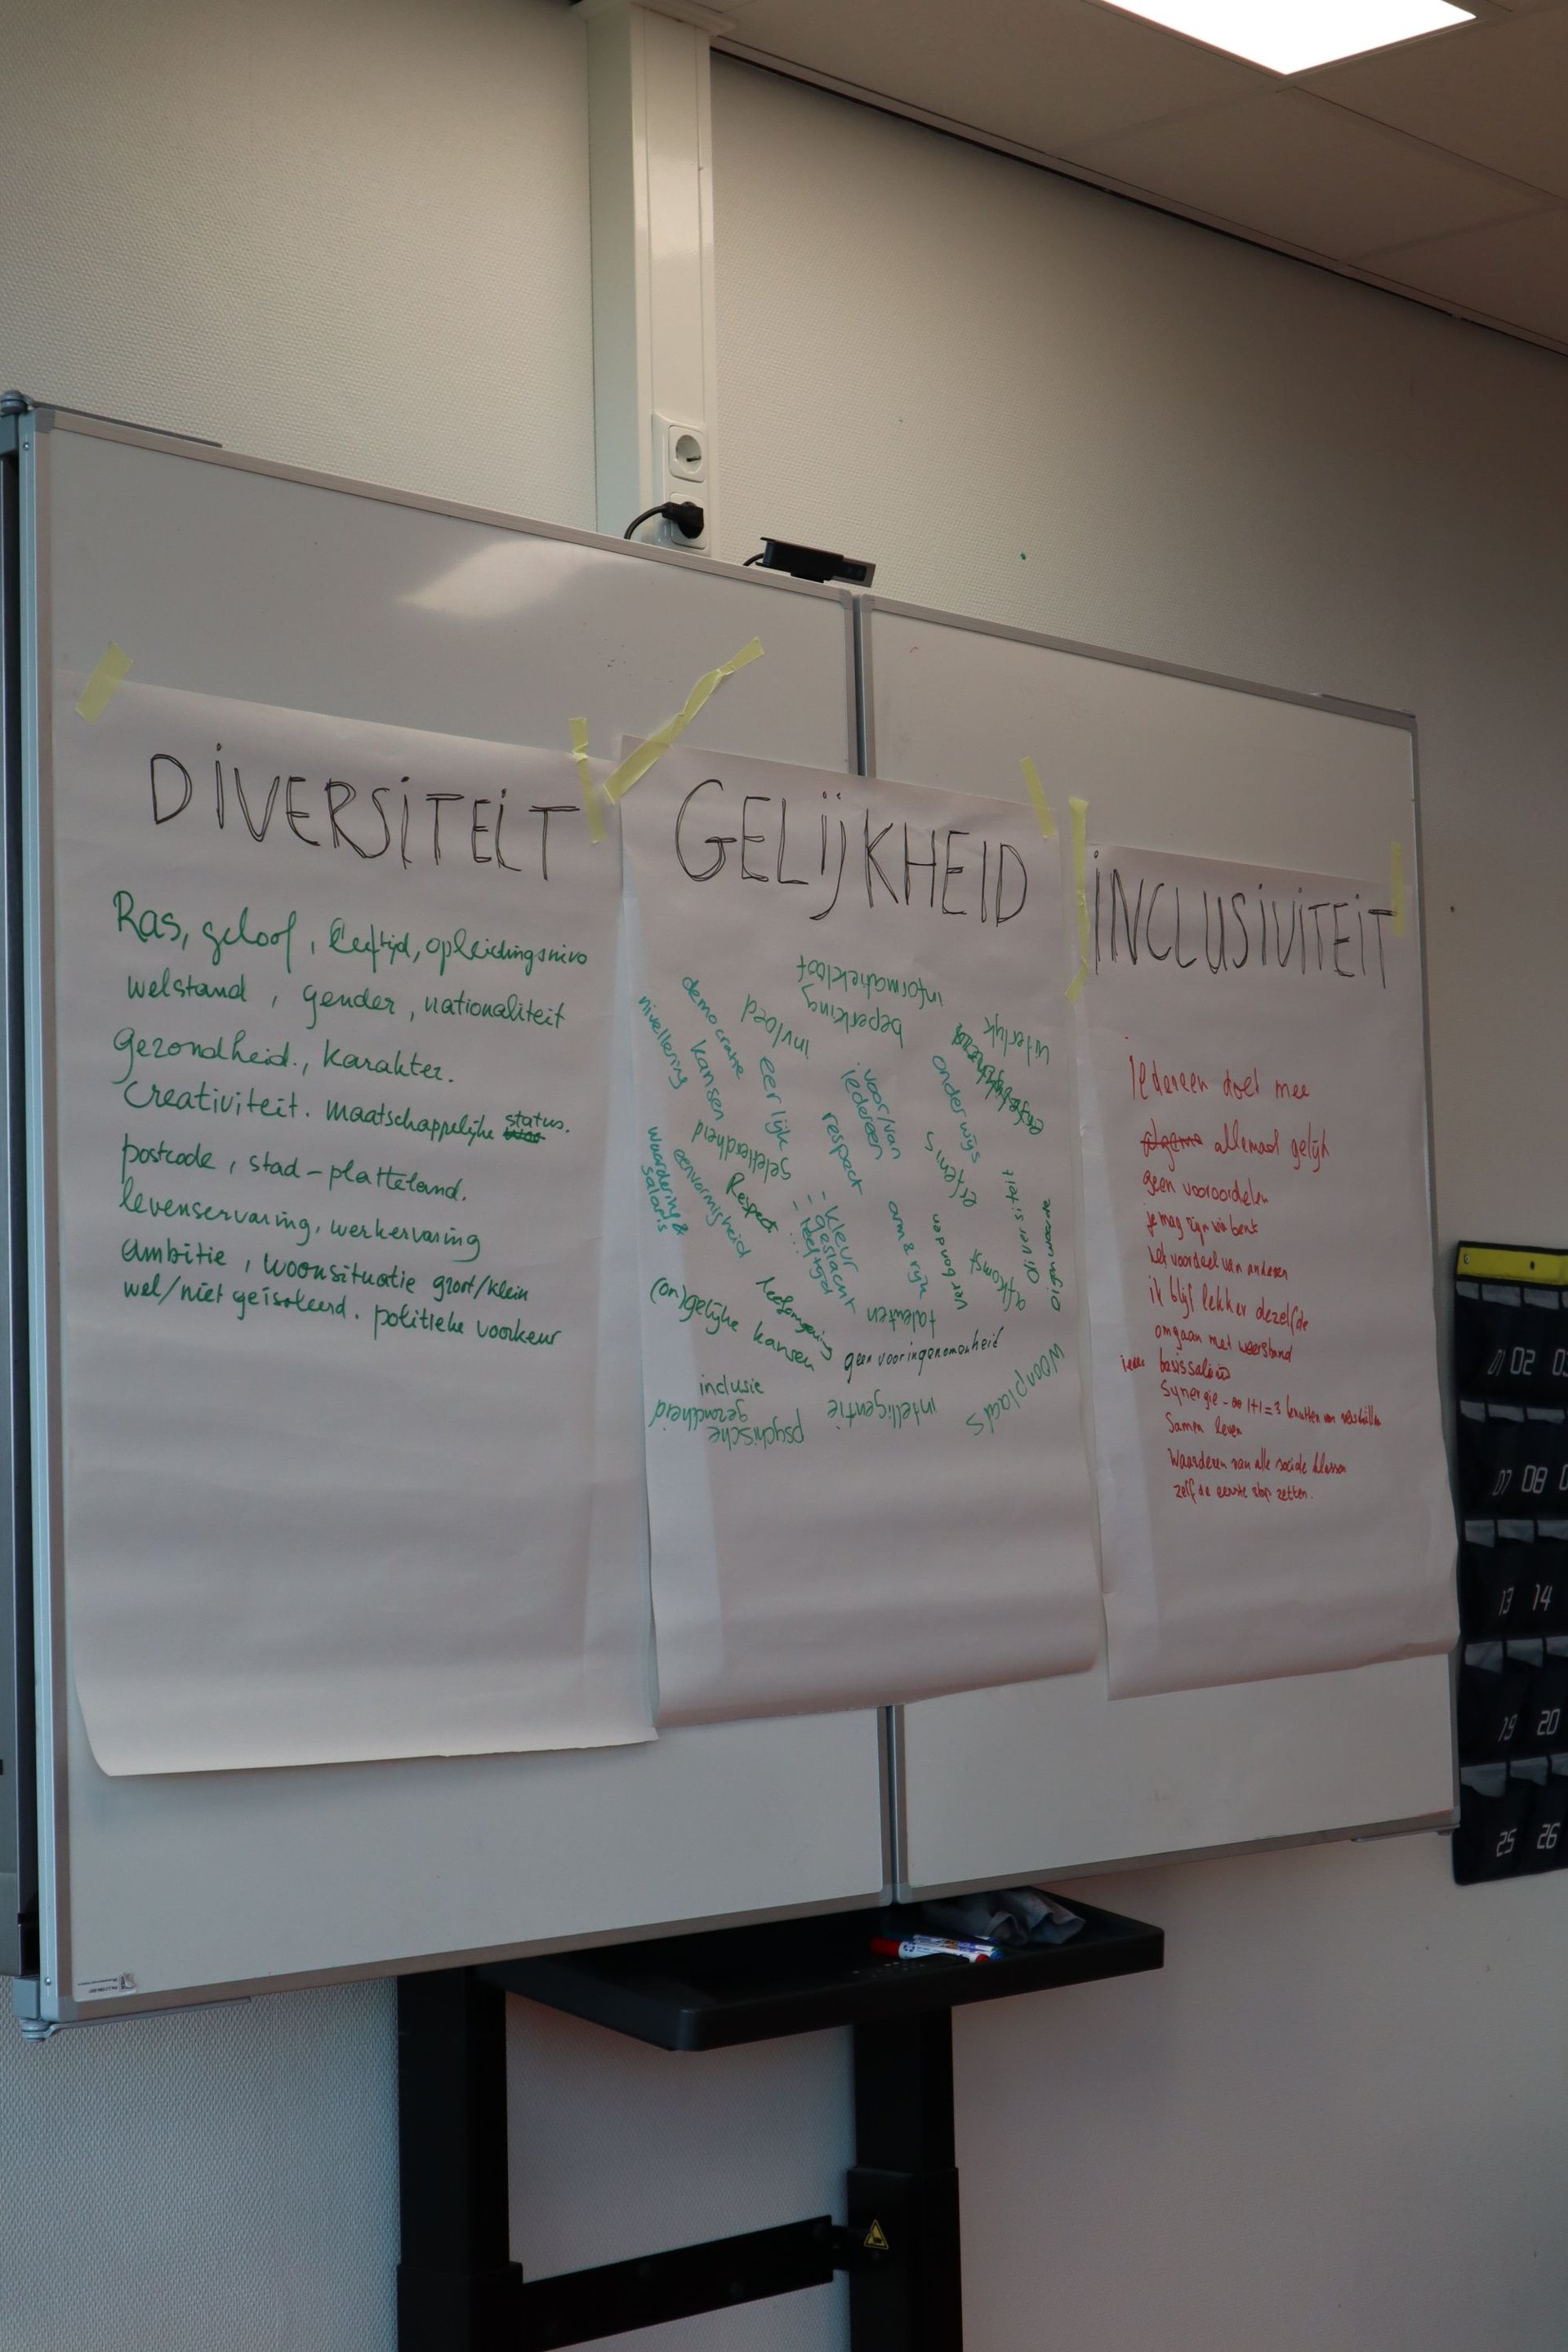 DIVERSITEIT
Ras, geloof, leeftijd, opleidingsnivo
welstand, gender, nationaliteit
gezondheid., karakter.
Creativiteit. maatschappelijke status.
postcode, stad-platteland.
levenservaring, werkervaring
Ambitie, woonsituatie groot/klein
wel/niet geïsoleerd. politieke voorkeur
GELIJKHEID
informatiekloof
beperking
invloed
democratie
nivellering
kansen
eerlijk
voor/van
iedereen
onderwijs
uiterlijk
geletterdheid
respect
erfenis
waardering &
salaris
eenvormigheid
Respect
- kleur
- geslacht
- leeftijd
...
arm & rijk
verbonden
afkomst
diversiteit
eigenwaarde
(on)gelijke kansen
leefomgeving
talenten
geen vooringenomenheid
woonplaats
inclusie
psychische
gezondheid
intelligentie
INCLUSIVITEIT
Iedereen doet mee
allemaal gelijk
geen vooroordelen
je mag zijn wie bent
het voordeel van anderen
ik blijf lekker dezelfde
omgaan met weerstand
basissalaris
Synergie - 1+1=3 benutten van verschillen
Samen leven
Waarderen van alle sociale klassen
zelf de eerste stap zetten.
01 02 03
07 08
13 14
19 20
25 26